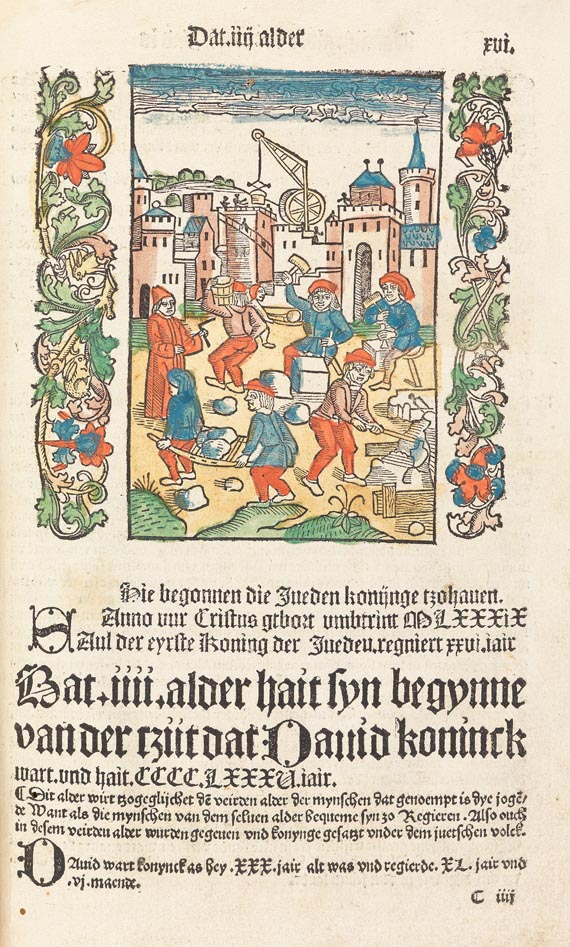 Dat .iiij. alder
xvi.
Hie begonnen die Jueden konijnge tzohauen.
Anno vur Cristus gebort vmbtrint MLXXXIX
SAul der eyrste Koning der Jueden.regniert xxvi.iair
Dat .iiii. alder hait syn begynne
van der tzijt dat Dauid koninck
wart. vnd hait. CCCC. LXXXV. iair.
¶ Dit alder wirt tzogeglijchet dē veirden alder der mynschen dat genoempt is dye jogē/
de Want als die mynschen van dem seluen alder bequeme syn zo Regieren. Also ouch
in desem veirden alder wurden gegeuen vnd konynge gesatzt vnder dem juetschen volck.
DAuid wart konynck as hey .XXX. jair alt was vnd regierde. XL. jair vnd
.vj. maende.
C iiij